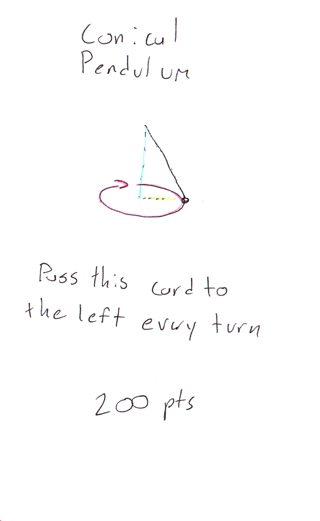 Conical
Pendulum
Pass this card to
the left every turn
200 pts